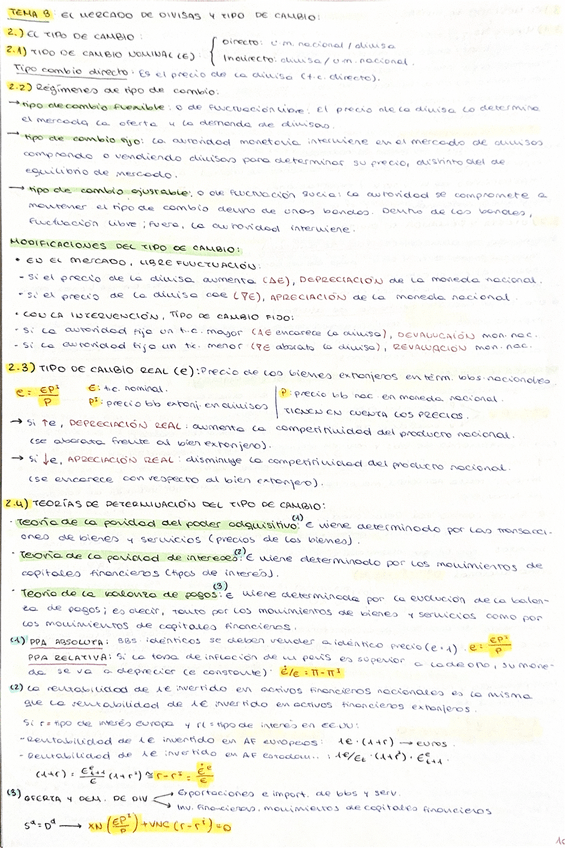 TEMA 8: EL MERCADO DE DIVISAS Y TIPO DE CAMBIO:
2.) EL TIPO DE CAMBIO:
2.1) TIPO DE CAMBIO NOMINAL (E): { Directo: u.m. nacional / divisa
Indirecto: divisa / u.m. nacional.
Tipo cambio directo: Es el precio de la divisa (t.c. directo).
2.2) Regímenes de tipo de cambio:
→ tipo de cambio flexible: o de fluctuación libre: El precio de la divisa lo determina
el mercado, la oferta y la demanda de divisas.
→ tipo de cambio fijo: la autoridad monetaria interviene en el mercado de divisas
comprando o vendiendo divisas para determinar su precio, distinto del de
equilibrio de mercado.
→ tipo de cambio ajustable: o de fluctuación sucia: la autoridad se compromete a
mantener el tipo de cambio dentro de unas bandas. Dentro de las bandas,
fluctuación libre; fuera, la autoridad interviene.
MODIFICACIONES DEL TIPO DE CAMBIO:
• EN EL MERCADO, LIBRE FLUCTUACIÓN:
- Si el precio de la divisa aumenta (△E), DEPRECIACIÓN de la moneda nacional.
- Si el precio de la divisa cae (▽E), APRECIACIÓN de la moneda nacional.
• CON LA INTERVENCIÓN, TIPO DE CAMBIO FIJO:
- Si la autoridad fija un t.c. mayor (△E encarece la divisa), DEVALUACIÓN mon. nac.
- Si la autoridad fija un t.c. menor (▽E abarata la divisa), REVALUACIÓN mon. nac.
2.3) TIPO DE CAMBIO REAL (e): Precio de los bienes extranjeros en térm. bbs. nacionales.
e = EP*/P E: t.c. nominal. P: precio bb nac en moneda nacional.
P*: precio bb extranj. en divisas TIENEN EN CUENTA LOS PRECIOS.
→ Si ↑e, DEPRECIACIÓN REAL: aumenta la competitividad del producto nacional.
(se abarata frente al bien extranjero).
→ Si ↓e, APRECIACIÓN REAL: disminuye la competitividad del producto nacional.
(se encarece con respecto al bien extranjero).
2.4) TEORÍAS DE DETERMINACIÓN DEL TIPO DE CAMBIO:
· Teoría de la paridad del poder adquisitivo (1): E viene determinado por las transacci-
ones de bienes y servicios (precios de los bienes).
· Teoría de la paridad de intereses (2): E viene determinado por los movimientos de
capitales financieros (tipos de interés).
· Teoría de la balanza de pagos (3): E viene determinado por la evolución de la balan-
za de pagos; es decir, tanto por los movimientos de bienes y servicios como por
los movimientos de capitales financieros.
(1) PPA ABSOLUTA: BBS idénticos se deben vender a idéntico precio (e=1). e = EP*/P
PPA RELATIVA: Si la tasa de inflación de un país es superior a la de otro, su mone-
da se va a depreciar (e constante): Ė/E = π - π*
(2) La rentabilidad de 1€ invertido en activos financieros nacionales es la misma
que la rentabilidad de 1€ invertido en activos financieros extranjeros.
Si r = tipo de interés europa y r* = tipo de interés en EEUU:
- Rentabilidad de 1€ invertido en AF europeos: 1€ · (1+r) → euros.
- Rentabilidad de 1€ invertido en AF estadoun..: 1€/Et · (1+r*) · E^e t+1
(1+r) = E^e t+1/E (1+r*) ≅ r - r* = Ė^e/E
(3) OFERTA Y DEM. DE DIV Exportaciones e import. de bbs y serv.
Inv. financieras, movimientos de capitales financieros
S^d = D^d → XN (EP*/P) + VNC (r - r*) = 0